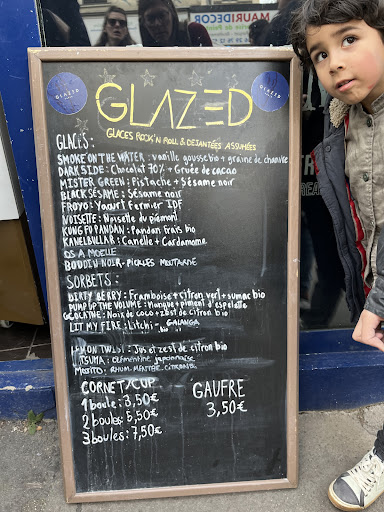 MAURIDECOR
GLAZED
GLACES ROCK'N ROLL & DÉJANTÉES ASSUMÉES
GLACES:
SMOKE ON THE WATER: vanille gousse bio + graine de chanvre
DARK SIDE: Chocolat 70% + Gruée de cacao
MISTER GREEN: Pistache + Sésame noir
BLACK SÉSAME: Sésame noir
FROYO: Yaourt Fermier IDF
NOISETTE: Noisette du piémont
KUNG FU PANDAN: Pandan frais bio
KANELBULLAR: Canelle + Cardamome
OS A MOELLE
BOUDIN NOIR - PICKLES MOUTARDE
SORBETS:
DIRTY BERRY: Framboise + citron vert + sumac bio
PUMP UP THE VOLUME: Mangue + piment d'espelette
COCKTNE: Noix de coco + zest de citron bio
LIT MY FIRE: Litchi - GALANGA
bio
MON TWIST: Jus et zest de citron bio
TSUMA: clémentine japonnaise
MOJITO: RHUM. MENTHE. CITRON
CORNET/CUP
1 boule: 3,50€
2 boules: 5,50€
3 boules: 7,50€
GAUFRE
3,50€